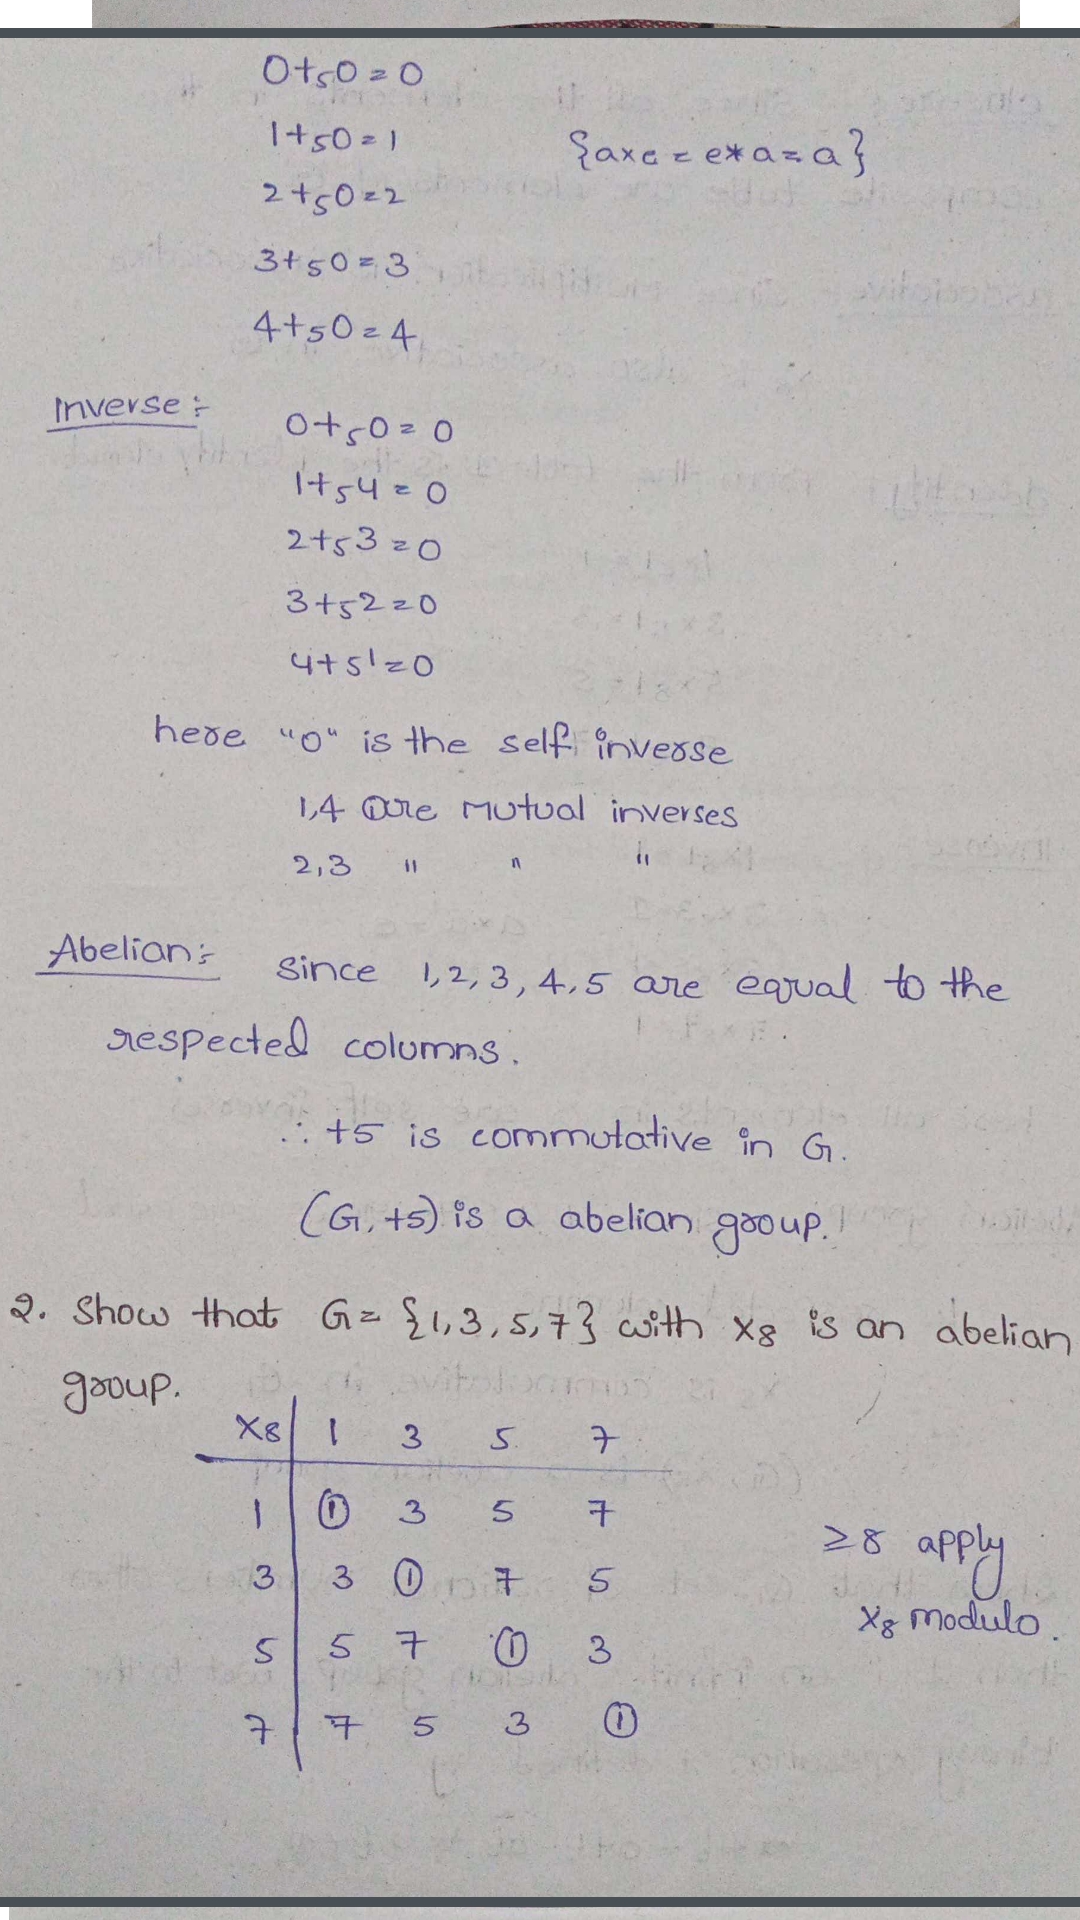 0+₅0=0
1+₅0=1 {a*e = e*a = a}
2+₅0=2
3+₅0=3
4+₅0=4
Inverse :-
0+₅0=0
1+₅4=0
2+₅3=0
3+₅2=0
4+₅1=0
here "0" is the self inverse
1,4 are mutual inverses
2,3 " " "
Abelian:- since 1,2,3,4,5 are equal to the
respected columns.
∴ +5 is commutative in G.
(G,+5) is a abelian group.
2. Show that G= {1,3,5,7} with x8 is an abelian
group.
x8 1 3 5 7
1 1 3 5 7
3 3 1 7 5
5 5 7 1 3
7 7 5 3 1
≥8 apply
x₈ modulo.